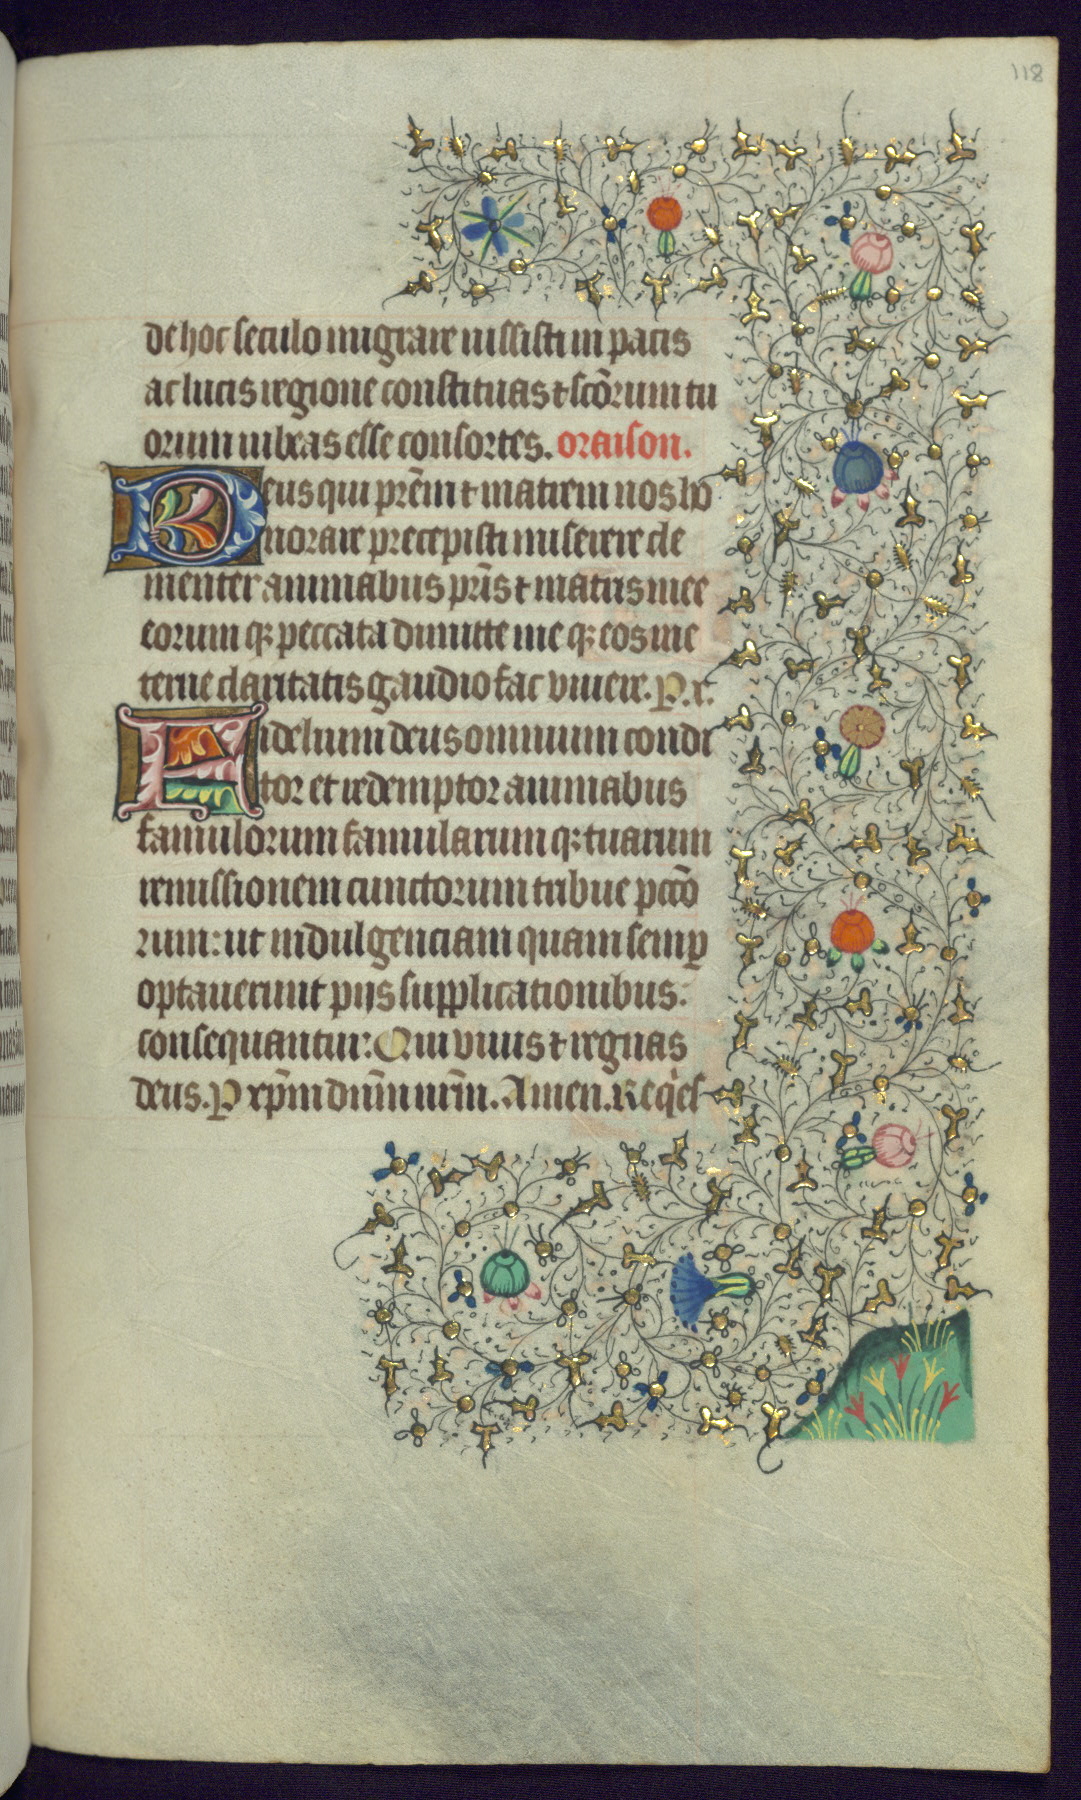 118
de hoc seculo migrare iussisti in pacis
ac lucis regione constituas ⁊ scõrum tu
orum iubeas esse consortes. oraison.
Deus qui prẽm ⁊ matrem nos ho
norare precepisti miserere cle
menter animabus pr̃is ⁊ matris mee
eorum qꝫ peccata dimitte me qꝫ eos in e
terne claritatis gaudio fac viuere. P. x.
Fidelium deus omnium condi
tor et redemptor animabus
famulorum famularum qꝫ tuarum
remissionem cunctorum tribue pctõ
rum: ut indulgenciam quam semꝑ
optauerunt pijs supplicationibus:
consequantur: Qui viuis ⁊ regnas
deus. P xp̃m dñm nr̃m. Amen. Reqͥes